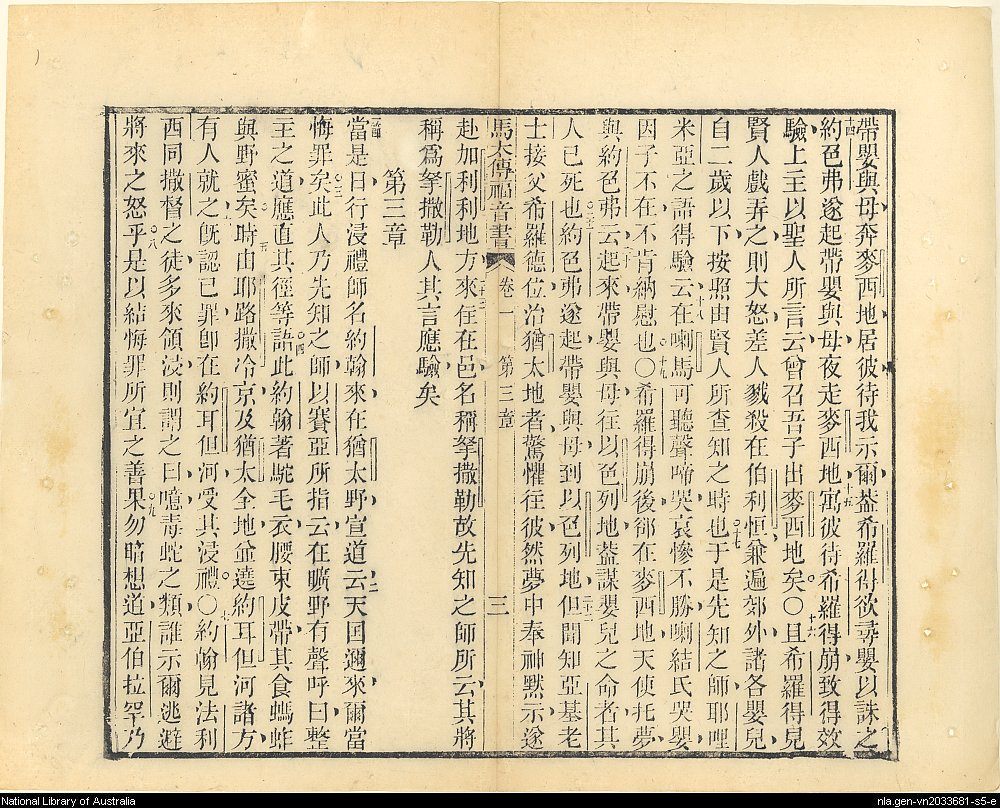 帶嬰與母奔麥西地居彼待我示爾葢希羅得欲尋嬰以誅之
十四約色弗遂起帶嬰與母夜走麥西地十五寓彼待希羅得崩致得效
驗上主以聖人所言云曾召吾子出麥西地矣○十六且希羅得見
賢人戲弄之則大怒差人戮殺在伯利恒兼遍郊外諸各嬰兒
自二歲以下按照由賢人所查知之時也十七于是先知之師耶哩
米亞之語得驗十八云在喇馬可聽聲啼哭哀慘不勝喇結氏哭嬰
因子不在不肯納慰也○十九希羅得崩後郤在麥西地天使托夢
與約色弗二十云起來帶嬰與母往以色列地葢謀嬰兒之命者其
人已死也二十一約色弗遂起帶嬰與母到以色列地二十二但聞知亞基老
士接父希羅德位治猶太地者驚懼往彼然夢中奉神默示遂
馬太傳福音書 卷一 第三章 三
赴加利利地方二十三來住在邑名稱拏撒勒故先知之師所云其將
稱爲拏撒勒人其言應驗矣
第三章
第一節當是日行浸禮師名約翰來在猶太野宣道二云天国邇來爾當
悔罪矣三此人乃先知之師以賽亞所指云在曠野有聲呼曰整
主之道應直其徑等語四此約翰著駝毛衣腰束皮帶其食螞蚱
與野蜜矣五時由耶路撒冷京及猶太全地並遶約耳但河諸方
有人就之六旣認已罪卽在約耳但河受其浸禮○七約翰見法利
西同撒督之徒多來領浸則謂之曰噫毒蛇之類誰示爾逃避
將來之怒乎八是以結悔罪所宜之善果九勿暗想道亞伯拉罕乃
National Library of Australia
nla.gen-vn2033681-s5-e